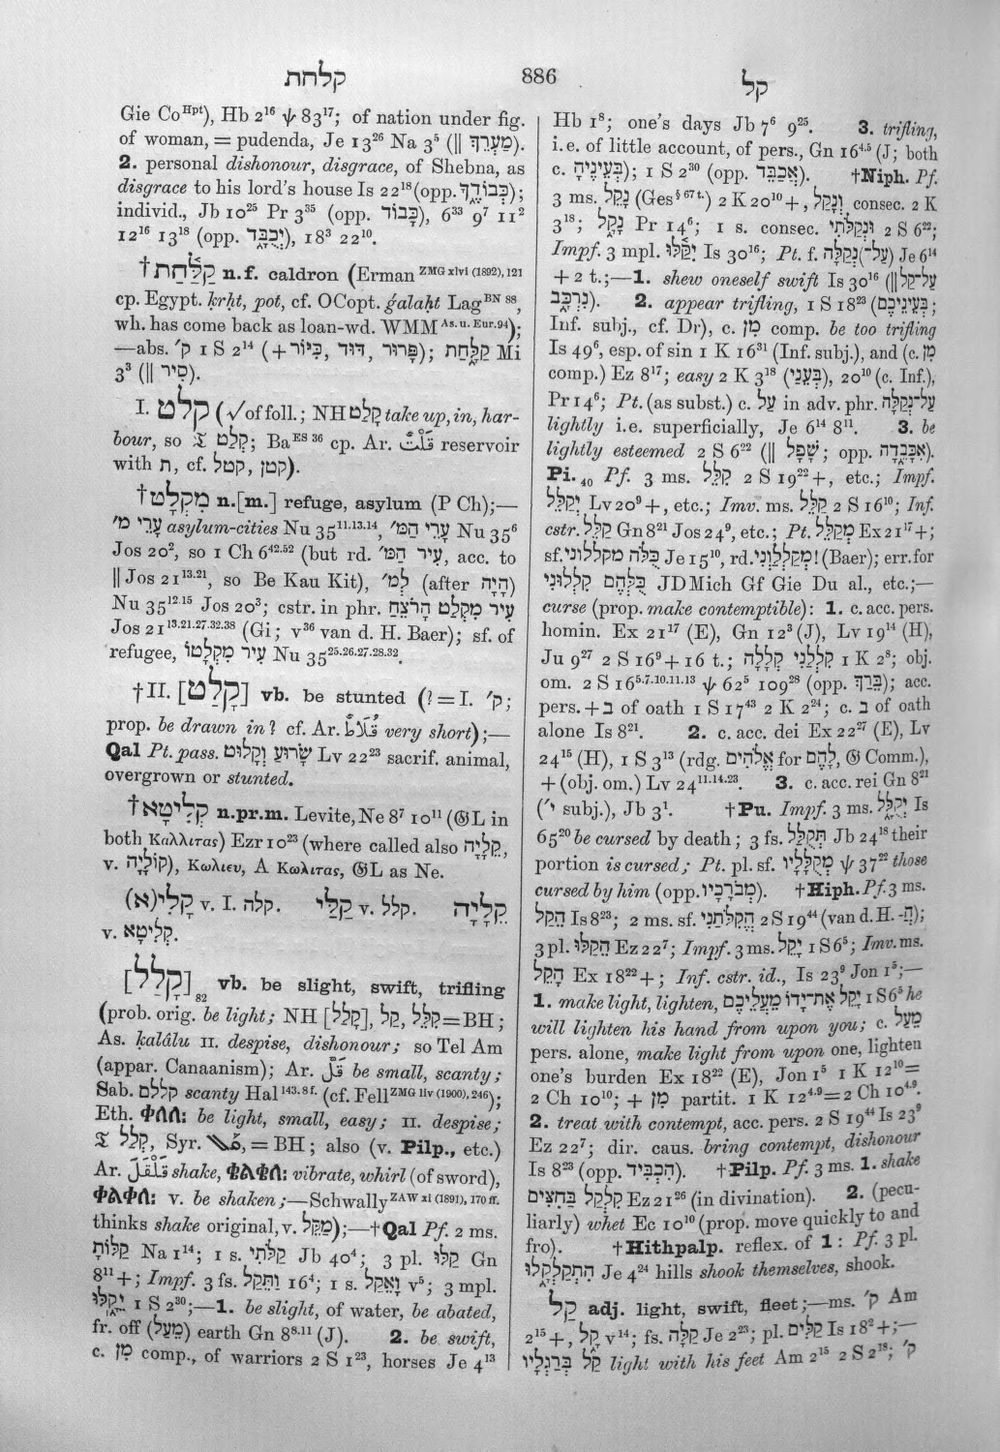 קלחת
886
קל
Gie Co Hpt), Hb 2¹⁶ ψ 83¹⁷; of nation under fig.
of woman, = pudenda, Je 13²⁶ Na 3⁵ (|| מַעְרֵךְ).
2. personal dishonour, disgrace, of Shebna, as
disgrace to his lord's house Is 22¹⁸ (opp. כְּבוֹדֶךָ);
individ., Jb 10²⁵ Pr 3³⁵ (opp. כָּבוֹד), 6³³ 9⁷ 11²
12¹⁶ 13¹⁸ (opp. יְכֻבָּד), 18³ 22¹⁰.
†קַלַּחַת n.f. caldron (Erman ZMG xlvi (1892), 121
cp. Egypt. ḳrḥt, pot, cf. OCopt. ǵalaḥt Lag BN 88,
wh. has come back as loan-wd. WMM As. u. Eur. 94);
—abs. ק׳ 1 S 2¹⁴ (+ כִּיּוֹר, דּוּד, פָּרוּר); קַלָּחַת Mi
3³ (|| סִיר).
I. קלט (√ of foll.; NH קָלַט take up, in, har-
bour, so 𝔗 קְלַט; Ba ES 36 cp. Ar. قَلْت reservoir
with ת, cf. קטן, קטל).
†מִקְלָט n.[m.] refuge, asylum (P Ch);—
עָרֵי מ׳ asylum-cities Nu 35¹¹·¹³·¹⁴, עָרֵי הַמּ׳ Nu 35⁶
Jos 20², so 1 Ch 6⁴²·⁵² (but rd. עִיר הַמּ׳, acc. to
|| Jos 21¹³·²¹, so Be Kau Kit), לְמ׳ (after הָיָה)
Nu 35¹²·¹⁵ Jos 20³; cstr. in phr. עִיר מִקְלַט הָרֹצֵחַ
Jos 21¹³·²¹·²⁷·³²·³⁸ (Gi; v³⁶ van d. H. Baer); sf. of
refugee, עִיר מִקְלָטוֹ Nu 35²⁵·²⁶·²⁷·²⁸·³².
†II. [קָלַט] vb. be stunted (? = I. ק׳;
prop. be drawn in? cf. Ar. قُلَاطٌ very short);—
Qal Pt. pass. שָׂרוּעַ וְקָלוּט Lv 22²³ sacrif. animal,
overgrown or stunted.
†קְלִיטָא n.pr.m. Levite, Ne 8⁷ 10¹¹ (𝔊L in
both Καλλιτας) Ezr 10²³ (where called also קֵלָיָה,
v. קוֹלָיָה), Κωλιεν, A Κωλιτας, 𝔊L as Ne.
קָלִי(א) v. I. קלה. קַלַּי v. קלל. קֵלָיָה
v. קְלִיטָא.
[קָלַל]₈₂ vb. be slight, swift, trifling
(prob. orig. be light; NH [קָלַל], קַל, קִלֵּל = BH;
As. ḳalâlu II. despise, dishonour; so Tel Am
(appar. Canaanism); Ar. قَلَّ be small, scanty;
Sab. קללם scanty Hal 143. 8 f. (cf. Fell ZMG liv (1900), 246);
Eth. ቀለለ: be light, small, easy; II. despise;
𝔗 קְלַל, Syr. ܩܰܠ, = BH; also (v. Pilp., etc.)
Ar. قَلْقَلَ shake, አንቀልቀለ: vibrate, whirl (of sword),
ቀልቀለ: v. be shaken;—Schwally ZAW xi (1891), 170 ff.
thinks shake original, v. מַקֵּל);—†Qal Pf. 2 ms.
קַלּוֹתָ Na 1¹⁴; 1 s. קַלֹּתִי Jb 40⁴; 3 pl. קַלּוּ Gn
8¹¹ +; Impf. 3 fs. וַתֵּקַל 16⁴; 1 s. וָאֵקַל v⁵; 3 mpl.
יֵקָלּוּ 1 S 2³⁰;—1. be slight, of water, be abated,
fr. off (מֵעַל) earth Gn 8⁸·¹¹ (J). 2. be swift,
c. מִן comp., of warriors 2 S 1²³, horses Je 4¹³
Hb 1⁸; one's days Jb 7⁶ 9²⁵. 3. trifling,
i.e. of little account, of pers., Gn 16⁴·⁵ (J; both
c. בְּעֵינֶיהָ); 1 S 2³⁰ (opp. אֲכַבֵּד). †Niph. Pf.
3 ms. נָקֵל (Ges §67t.) 2 K 20¹⁰ +, וְנָקֵל consec. 2 K
3¹⁸; נָקָל Pr 14⁶; 1 s. consec. וּנְקַלֹּתִי 2 S 6²²;
Impf. 3 mpl. יִקַּלּוּ Is 30¹⁶; Pt. f. (עַל־)נְקַלָּה Je 6¹⁴
+ 2 t.;—1. shew oneself swift Is 30¹⁶ (|| עַל־קַל
נִרְכָּב). 2. appear trifling, 1 S 18²³ (בְּעֵינֵיכֶם;
Inf. subj., cf. Dr), c. מִן comp. be too trifling
Is 49⁶, esp. of sin 1 K 16³¹ (Inf. subj.), and (c. מִן
comp.) Ez 8¹⁷; easy 2 K 3¹⁸ (בְּעֵינֵי), 20¹⁰ (c. Inf.),
Pr 14⁶; Pt. (as subst.) c. עַל in adv. phr. עַל־נְקַלָּה
lightly i.e. superficially, Je 6¹⁴ 8¹¹. 3. be
lightly esteemed 2 S 6²² (|| שָׁפָל; opp. אִכָּבֵדָה).
Pi.₄₀ Pf. 3 ms. קִלֵּל 2 S 19²² +, etc.; Impf.
יְקַלֵּל Lv 20⁹ +, etc.; Imv. ms. קַלֵּל 2 S 16¹⁰; Inf.
cstr. קַלֵּל Gn 8²¹ Jos 24⁹, etc.; Pt. מְקַלֵּל Ex 21¹⁷ +;
sf. כֻּלֹּה מקללוני Je 15¹⁰, rd. מְקַלְלַוְנִי! (Baer); err. for
כֻּלְּהֶם קִלְלוּנִי JDMich Gf Gie Du al., etc.;—
curse (prop. make contemptible): 1. c. acc. pers.
homin. Ex 21¹⁷ (E), Gn 12³ (J), Lv 19¹⁴ (H),
Ju 9²⁷ 2 S 16⁹ + 16 t.; קִלְלַנִי קְלָלָה 1 K 2⁸; obj.
om. 2 S 16⁵·⁷·¹⁰·¹¹·¹³ ψ 62⁵ 109²⁸ (opp. בֵּרֵךְ); acc.
pers. + ב of oath 1 S 17⁴³ 2 K 2²⁴; c. ב of oath
alone Is 8²¹. 2. c. acc. dei Ex 22²⁷ (E), Lv
24¹⁵ (H), 1 S 3¹³ (rdg. אֱלֹהִים for לָהֶם, 𝔊 Comm.),
+ (obj. om.) Lv 24¹¹·¹⁴·²³. 3. c. acc. rei Gn 8²¹
(י׳ subj.), Jb 3¹. †Pu. Impf. 3 ms. יְקֻלָּל Is
65²⁰ be cursed by death; 3 fs. תְּקֻלַּל Jb 24¹⁸ their
portion is cursed; Pt. pl. sf. מְקֻלָּלָיו ψ 37²² those
cursed by him (opp. מְבֹרָכָיו). †Hiph. Pf. 3 ms.
הֵקַל Is 8²³; 2 ms. sf. הֱקִלֹּתַנִי 2 S 19⁴⁴ (van d. H. הֲ-);
3 pl. הֵקַלּוּ Ez 22⁷; Impf. 3 ms. יָקֵל 1 S 6⁵; Imv. ms.
הָקֵל Ex 18²² +; Inf. cstr. id., Is 23⁹ Jon 1⁵;—
1. make light, lighten, יָקֵל אֶת־יָדוֹ מֵעֲלֵיכֶם 1 S 6⁵ he
will lighten his hand from upon you; c. מֵעַל
pers. alone, make light from upon one, lighten
one's burden Ex 18²² (E), Jon 1⁵ 1 K 12¹⁰ =
2 Ch 10¹⁰; + מִן partit. 1 K 12⁴·⁹ = 2 Ch 10⁴·⁹.
2. treat with contempt, acc. pers. 2 S 19⁴⁴ Is 23⁹
Ez 22⁷; dir. caus. bring contempt, dishonour
Is 8²³ (opp. הִכְבִּיד). †Pilp. Pf. 3 ms. 1. shake
קִלְקַל בַּחִצִּים Ez 21²⁶ (in divination). 2. (pecu-
liarly) whet Ec 10¹⁰ (prop. move quickly to and
fro). †Hithpalp. reflex. of 1: Pf. 3 pl.
הִתְקַלְקָלוּ Je 4²⁴ hills shook themselves, shook.
קַל adj. light, swift, fleet;—ms. ק׳ Am
2¹⁵ +, קָל v¹⁴; fs. קַלָּה Je 2²³; pl. קַלִּים Is 18² +;—
קַל בְּרַגְלָיו light with his feet Am 2¹⁵ 2 S 2¹⁸; ק׳